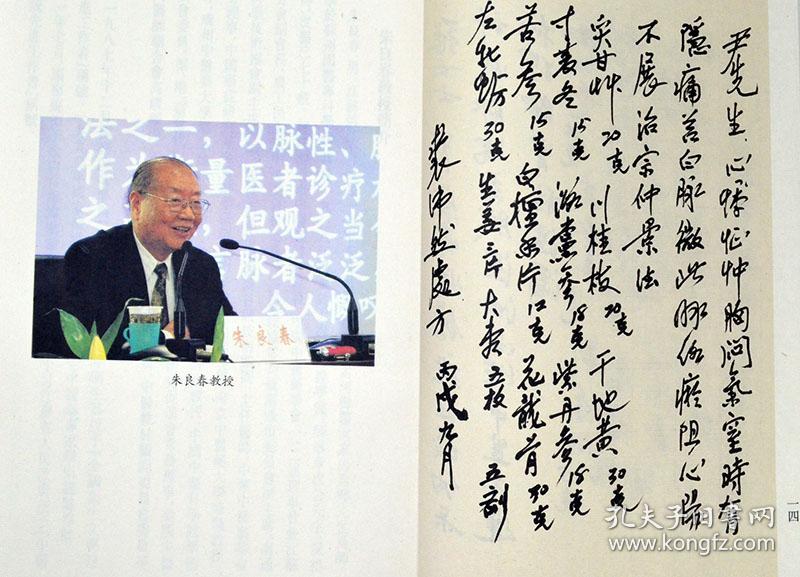 法之一，以脉性、
作
量医者诊疗
之
但观之当
脉者泛泛
令人慨叹
朱良春
朱良春教授
尹先生 心悸怔忡胸闷氣窒時有
隱痛苔白脈微此脈係瘀阻心陽
不展治宗仲景法
炙甘艸20克 川桂枝20克 干地黄30克
寸麦冬15克 潞黨參18克 紫丹參18克
苦參15克 白檀香片12克 花龍骨30克
左牡蛎30克 生姜三片 大枣五枚 五剂
裘沛然處方 丙戌九月
一四
孔夫子旧书网
www.kongfz.com